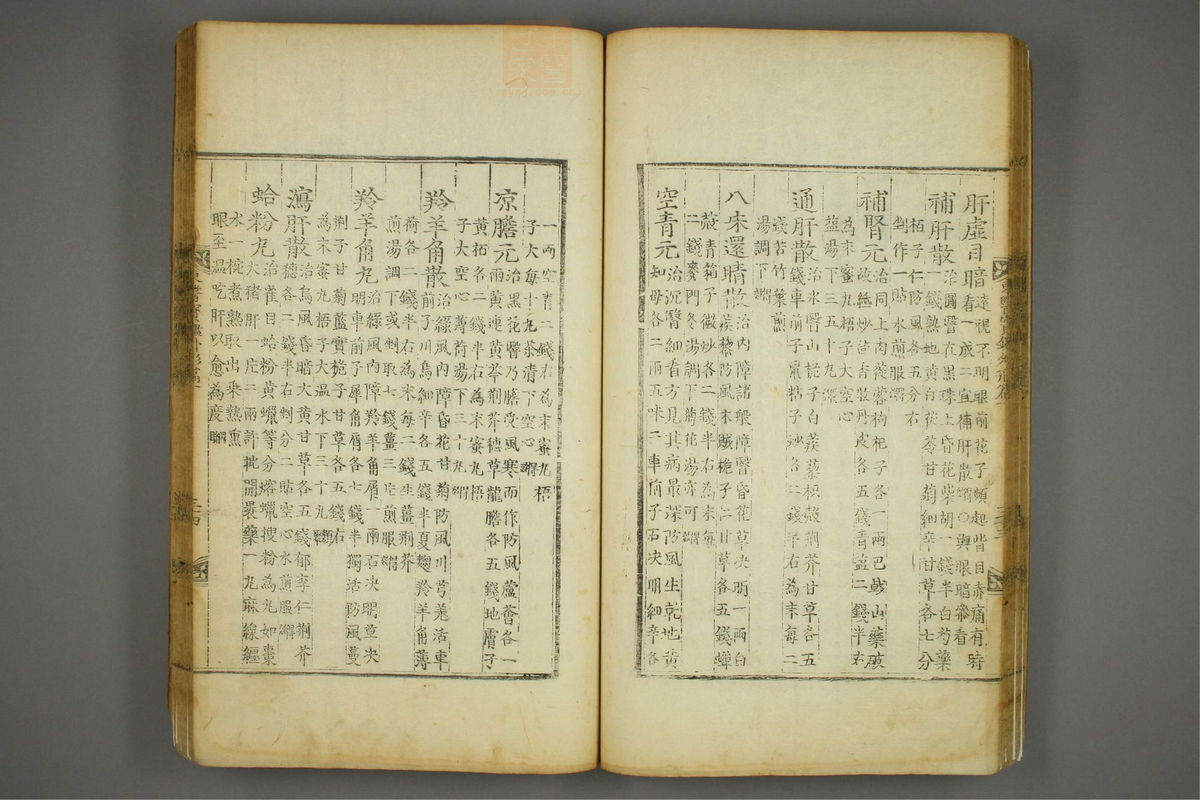 肝虛目暗遠視不明眼前花子頻起眥目赤痛有時
看成二宜補肝散○與眼暗參看
補肝散治圓翳在黑珠上昏花柴胡一錢半白芍藥
一錢熟地黃白茯苓甘菊細辛甘草各七分
栢子仁防風各五分右
剉作一貼水煎服
補腎元治同上肉蓯蓉枸杞子各一兩巴戟山藥破
故紙炒茴香牧丹皮各五錢青鹽二錢半右
為末蜜丸梧子大空心
鹽湯下三五十丸
通肝散治氷翳山梔子白蒺藜枳殼荊芥甘草各五
錢車前子鼠粘子炒各二錢半右為末每二
錢苦竹葉煎
湯調下
八味還睛散治內障諸般障翳昏花草決明一兩白
蒺藜防風木賊梔子仁甘草各五錢蟬
蔲青箱子微炒各二錢半右為末每
二錢麥門冬湯調下菊花湯亦可
空青元治沉翳細看方見其病最深防風生乾地黃
知母各二兩五味子車前子石決明細辛各
一兩空青二錢右為末蜜丸梧
子大每十丸茶清下空心
凉膽元治黑花翳乃膽受風寒而作防風蘆薈各一
兩黃連黃芩荊芥穗草龍膽各五錢地膚子
黃栢各二錢半右為末蜜丸梧
子大空心薄荷湯下三十丸
羚羊角散治綠風內障昏花甘菊防風川芎羗活車
前子川烏細辛各五錢半夏麴羚羊角薄
荷各二錢半右為末每二錢生薑荊芥
煎湯調下或剉取七錢薑三片煎服
羚羊角丸治綠風內障羚羊角屑一兩石決明草決
明車前子犀角屑各七錢半獨活防風蔓
荊子甘菊藍實梔子甘草各五錢右
為末蜜丸梧子大溫水下三十丸
瀉肝散治烏風昏暗大黃甘草各五錢郁李仁荊芥
穗各二錢半右剉分二貼空心水煎服
蛤粉丸治雀目蛤粉黃蠟等分熔蠟搜粉為丸如棗
大猪肝一片二兩許批開褁藥一丸麻線纏
水一椀煮熟取出乗熟熏
眼至溫吃肝以愈為度